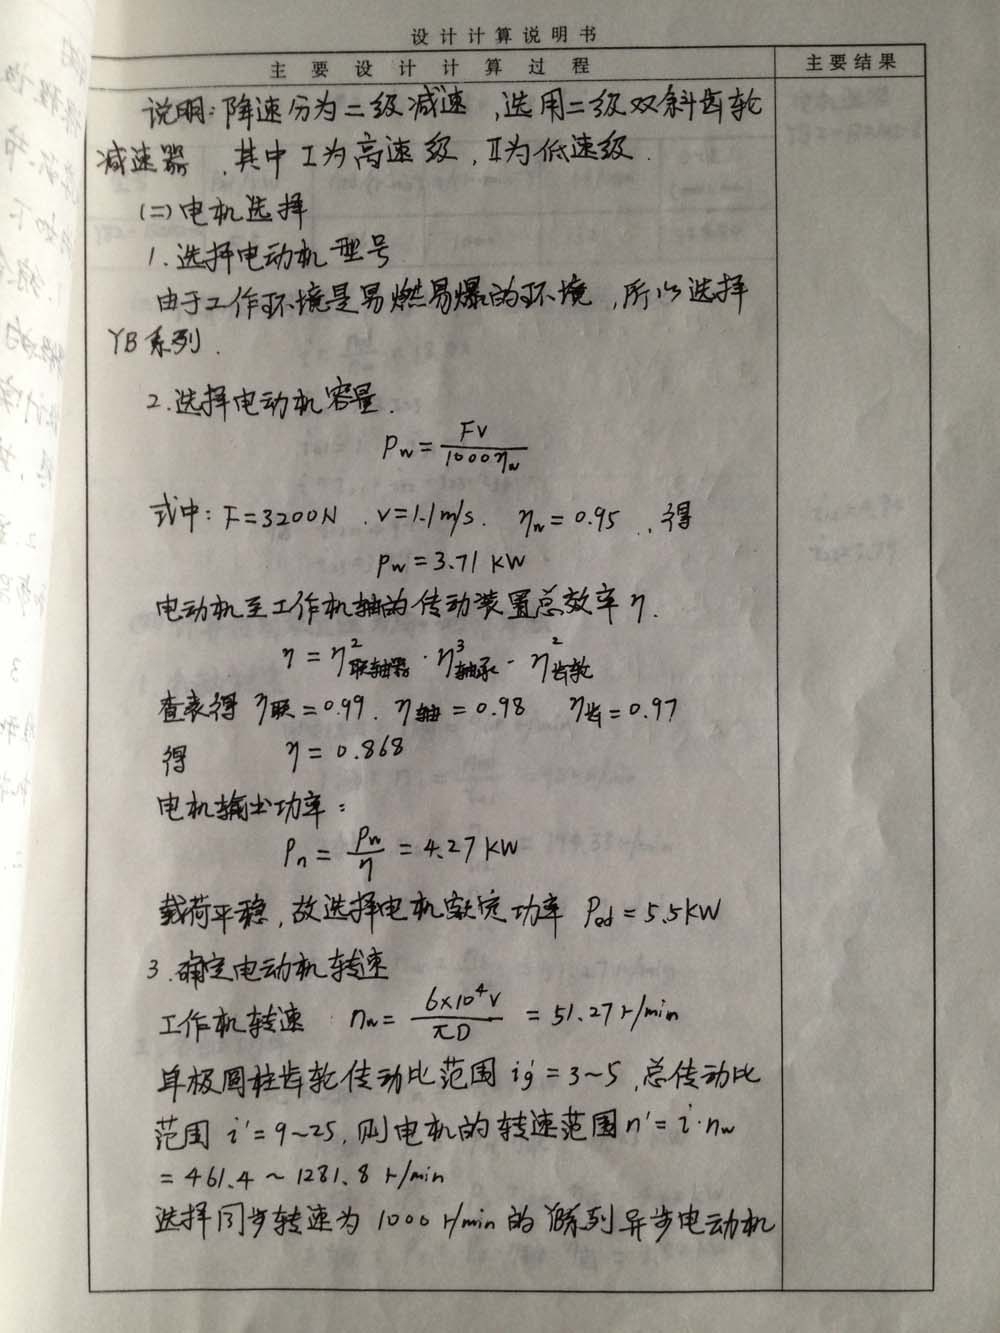 设计计算说明书
主要设计计算过程
主要结果
说明:降速分为二级减速,选用二级双斜齿轮
减速器,其中I为高速级,II为低速级.
(二)电机选择
1.选择电动机型号
由于工作环境是易燃易爆的环境,所以选择
YB系列.
2.选择电动机容量.
Pw=FV/1000ηw
式中:F=3200N.V=1.1m/s.ηw=0.95,得
Pw=3.71KW
电动机至工作机轴的传动装置总效率η.
η=η²联轴器·η³轴承·η²齿轮
查表得η联=0.99.η轴=0.98 η齿=0.97
得 η=0.868
电机输出功率:
Pn=Pw/η=4.27KW
载荷平稳,故选择电机额定功率Ped=5.5KW
3.确定电动机转速
工作机转速 nw=6×10⁴V/πD=51.27r/min
单极圆柱齿轮传动比范围ig'=3~5,总传动比
范围i'=9~25,则电机的转速范围n'=i·nw
=461.4~1281.8r/min
选择同步转速为1000r/min的YB系列异步电动机